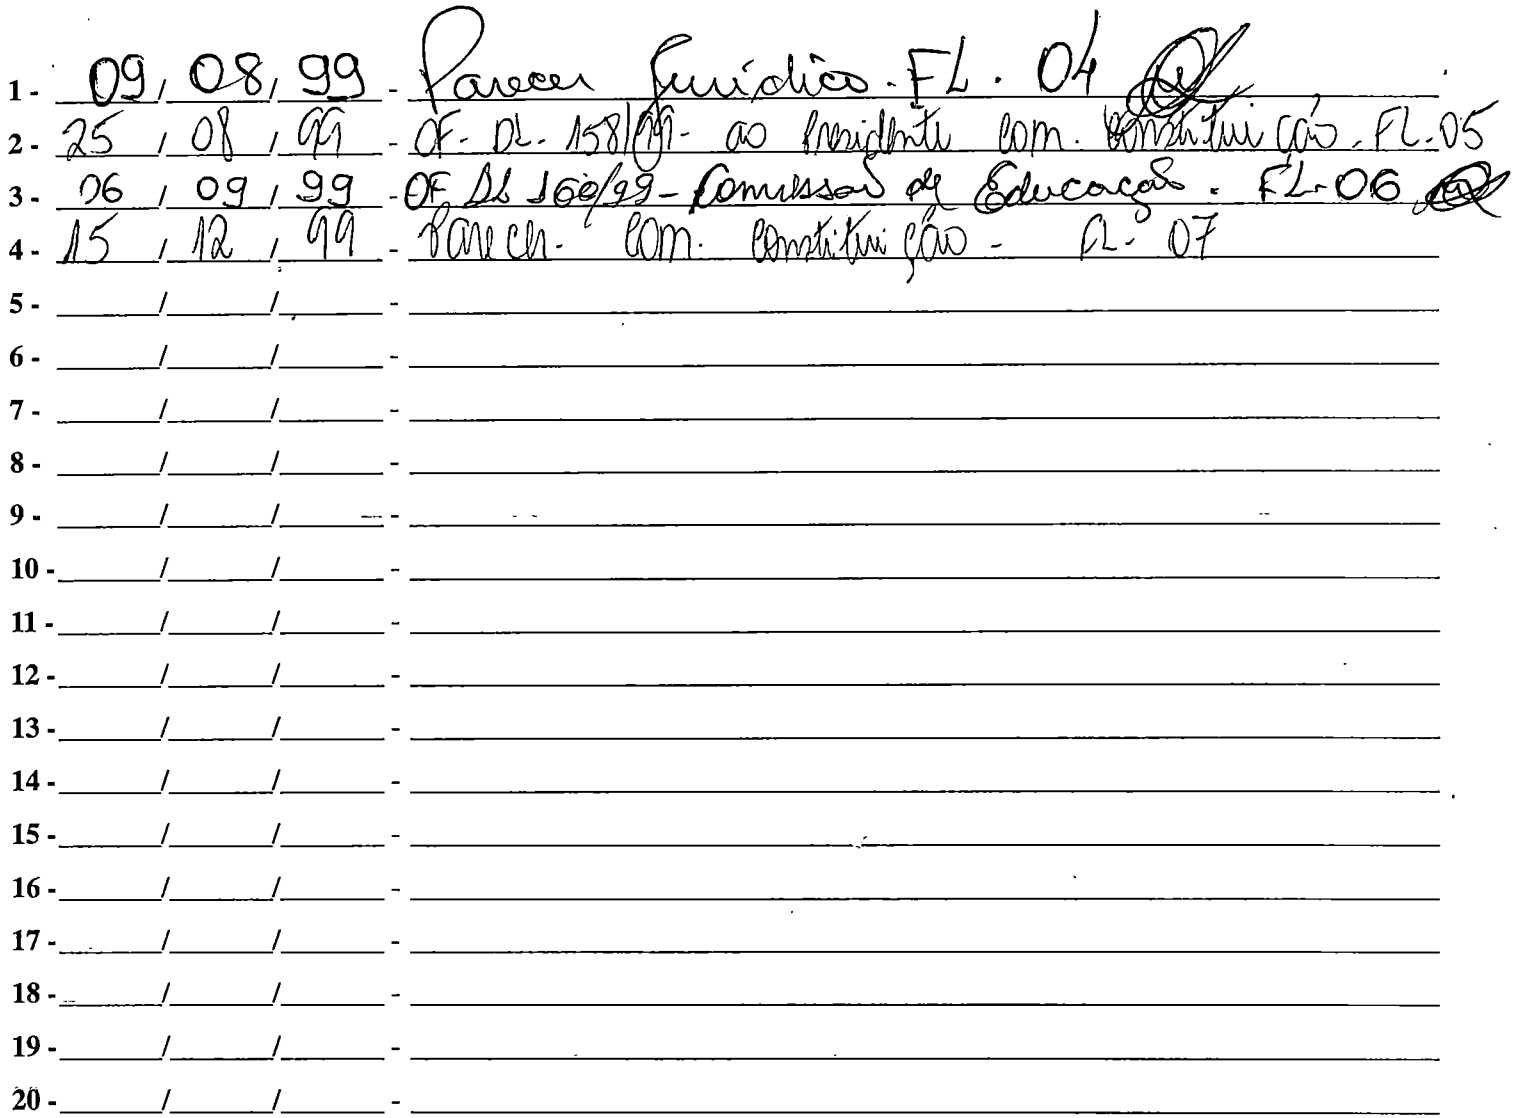 1 - 09 / 08 / 99 - Parecer Jurídico. FL. 04
2 - 25 / 08 / 99 - OF. DL. 158/99 - ao Presidente Com. Constituição. FL. 05
3 - 06 / 09 / 99 - OF DL 160/99 - Comissão de Educação. FL. 06
4 - 15 / 12 / 99 - Parecer. Com. Constituição - FL. 07
5 - ____/____/____ - 
6 - ____/____/____ - 
7 - ____/____/____ - 
8 - ____/____/____ - 
9 - ____/____/____ - 
10 - ____/____/____ - 
11 - ____/____/____ - 
12 - ____/____/____ - 
13 - ____/____/____ - 
14 - ____/____/____ - 
15 - ____/____/____ - 
16 - ____/____/____ - 
17 - ____/____/____ - 
18 - ____/____/____ - 
19 - ____/____/____ - 
20 - ____/____/____ -